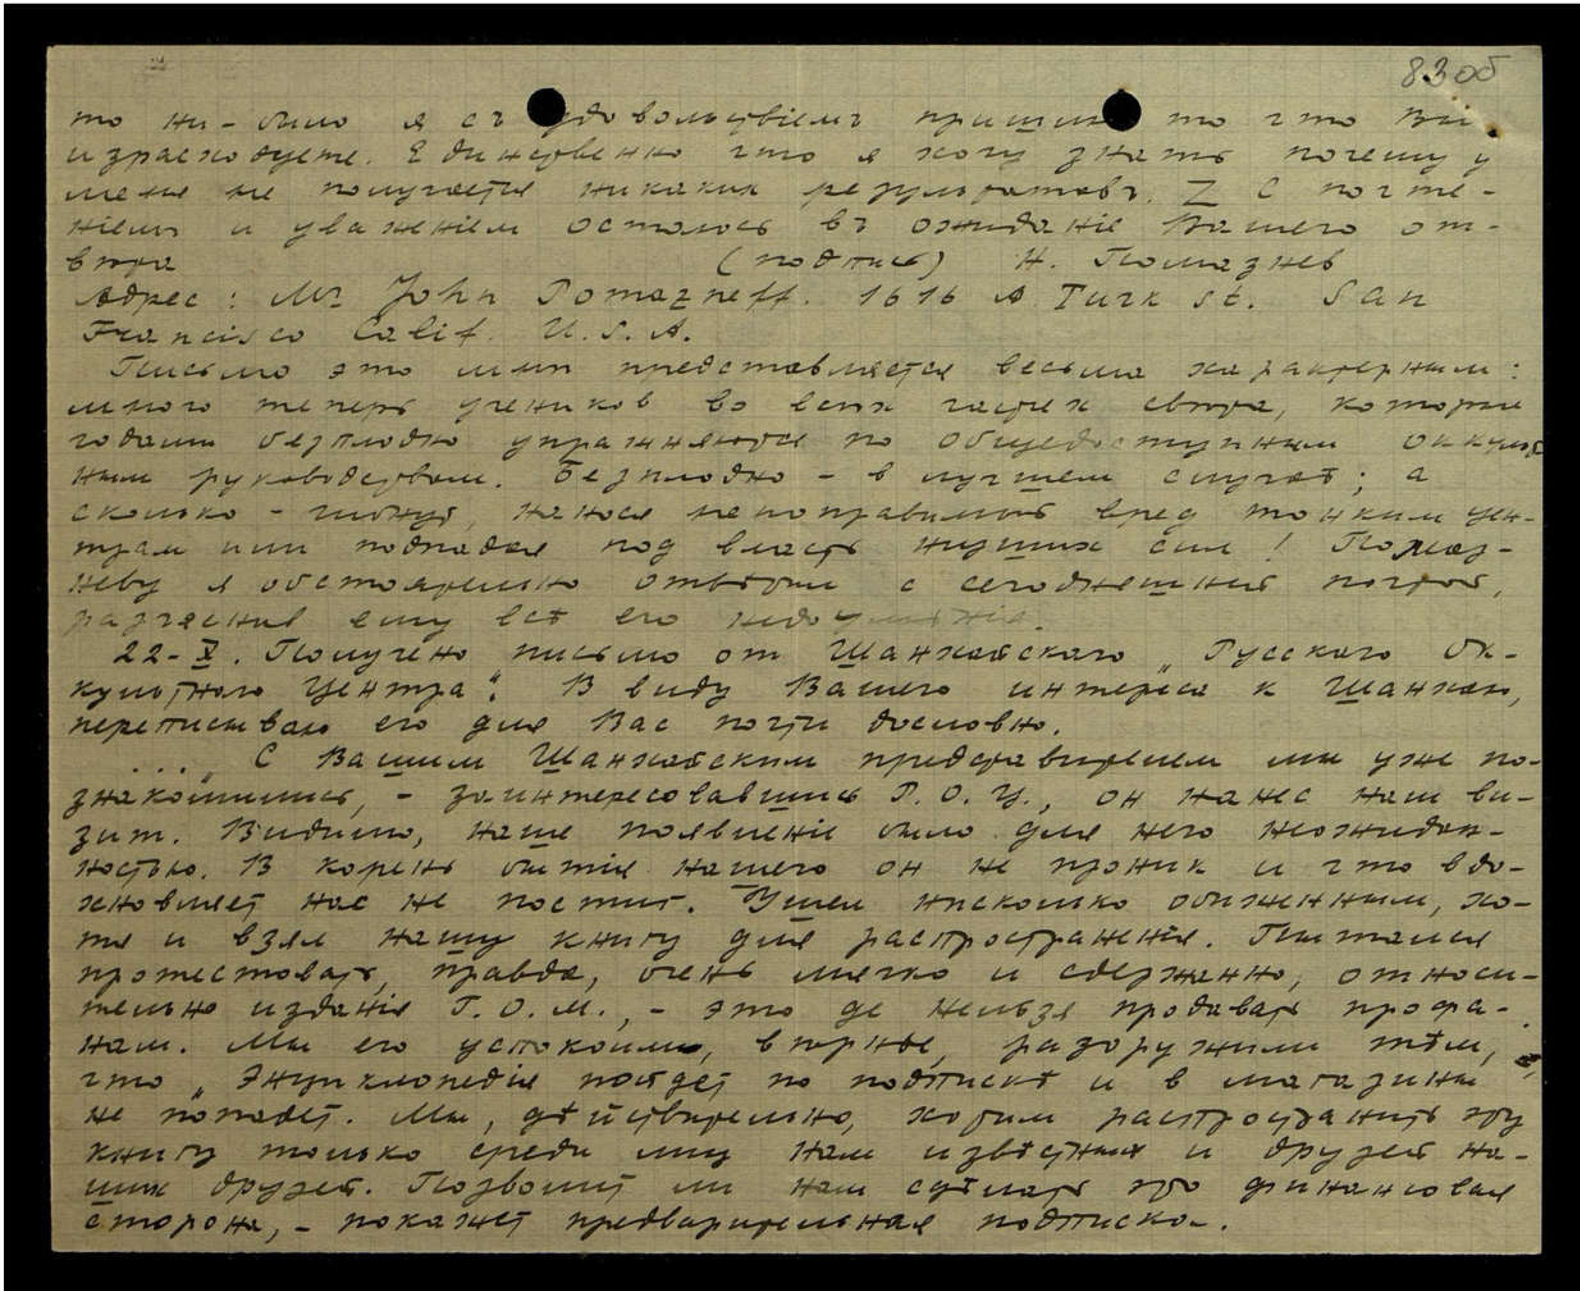 83об
то ни-было я съ удовольствіемъ пришлю то что Вы
израсходуете. Единственно что я хочу знать почему у
меня не получается никаких результатовъ. Z С почте-
ніемъ и уваженіем остаюсь въ ожиданіе Вашего от-
вѣта (подпись) И. Помазнев
Адрес: Mr John Pomazneff. 1616 A Turk St. San
Francisco Calif. U.S.A.
Письмо это мнѣ представляется весьма характерным:
много теперь учеников во всѣх частях свѣта, которые
годами безплодно упражняются по общедоступным оккульт
ным руководствам. Безплодно - в лучшем случаѣ; а
сколько - гибнут, нанося непоправимый вред тонким цен-
трам или подпадая под власть низших сил! Помаз-
неву я обстоятельно отвѣтил с сегодняшней почтой,
разъяснив ему всѣ его недоумѣнія.
22-X. Получено письмо от Шанхайскаго "Русскаго Ок-
культнаго Центра". В виду Вашего интереса к Шанхаю,
переписываю его для Вас почти дословно.
..." С Вашим Шанхайским представителем мы уже по-
знакомились, - заинтересовавшись Р.О.Ц., он нанес нам ви-
зит. Видимо, наше появленіе было для него неожидан-
ностью. В корень бытія нашего он не проник и что вдо-
хновляет нас не постиг. Ушел нисколько обиженным, хо-
тя и взял нашу книгу для распространенія. Пытался
протестовать, правда, очень мягко и сдержанно, относи-
тельно изданія Г.О.М., - это де нельзя продавать профа-
нам. Мы его успокоили, вѣрнѣе, разоружили тѣм,
что "Энциклопедія пойдет по подпискѣ и в магазины
не попадет. Мы, дѣйствительно, хотим распространить эту
книгу только среди лиц нам извѣстных и друзей на-
ших друзей. Позволит ли нам сдѣлать это финансовая
сторона, - покажет предварительная подписка.